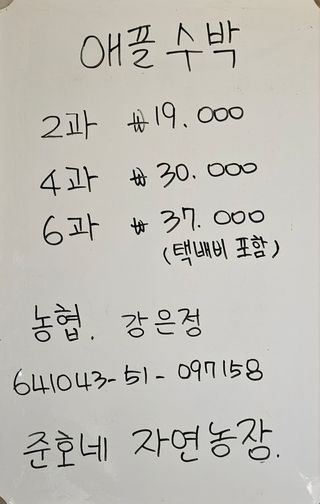 애플수박
2과 ₩19.000
4과 ₩30.000
6과 ₩37.000
(택배비 포함)
농협. 강은정
641043-51-097158
준호네 자연농장.